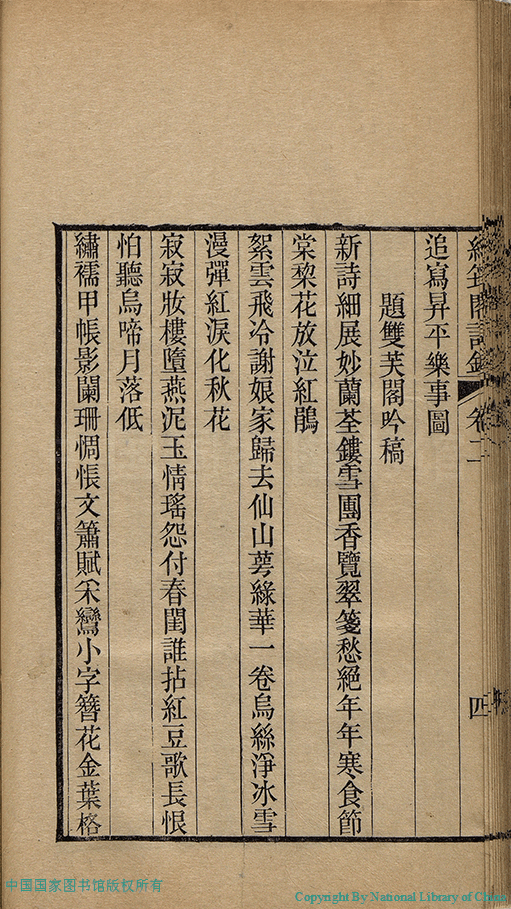 閣詩鈔 卷二 四
追寫昇平樂事圖
題雙芙閣吟稿
新詩細展妙蘭荃鏤雪團香覽翠箋愁絕年年寒食節
棠棃花放泣紅鵑
絮雲飛冷謝娘家歸去仙山萼綠華一卷烏絲淨冰雪
漫彈紅淚化秋花
寂寂妝樓墮燕泥玉情瑤怨付春閨誰拈紅豆歌長恨
怕聽烏啼月落低
繡襦甲帳影闌珊惆悵文簫賦采鸞小字簪花金葉格
中国国家图书馆版权所有
Copyright By National Library of China